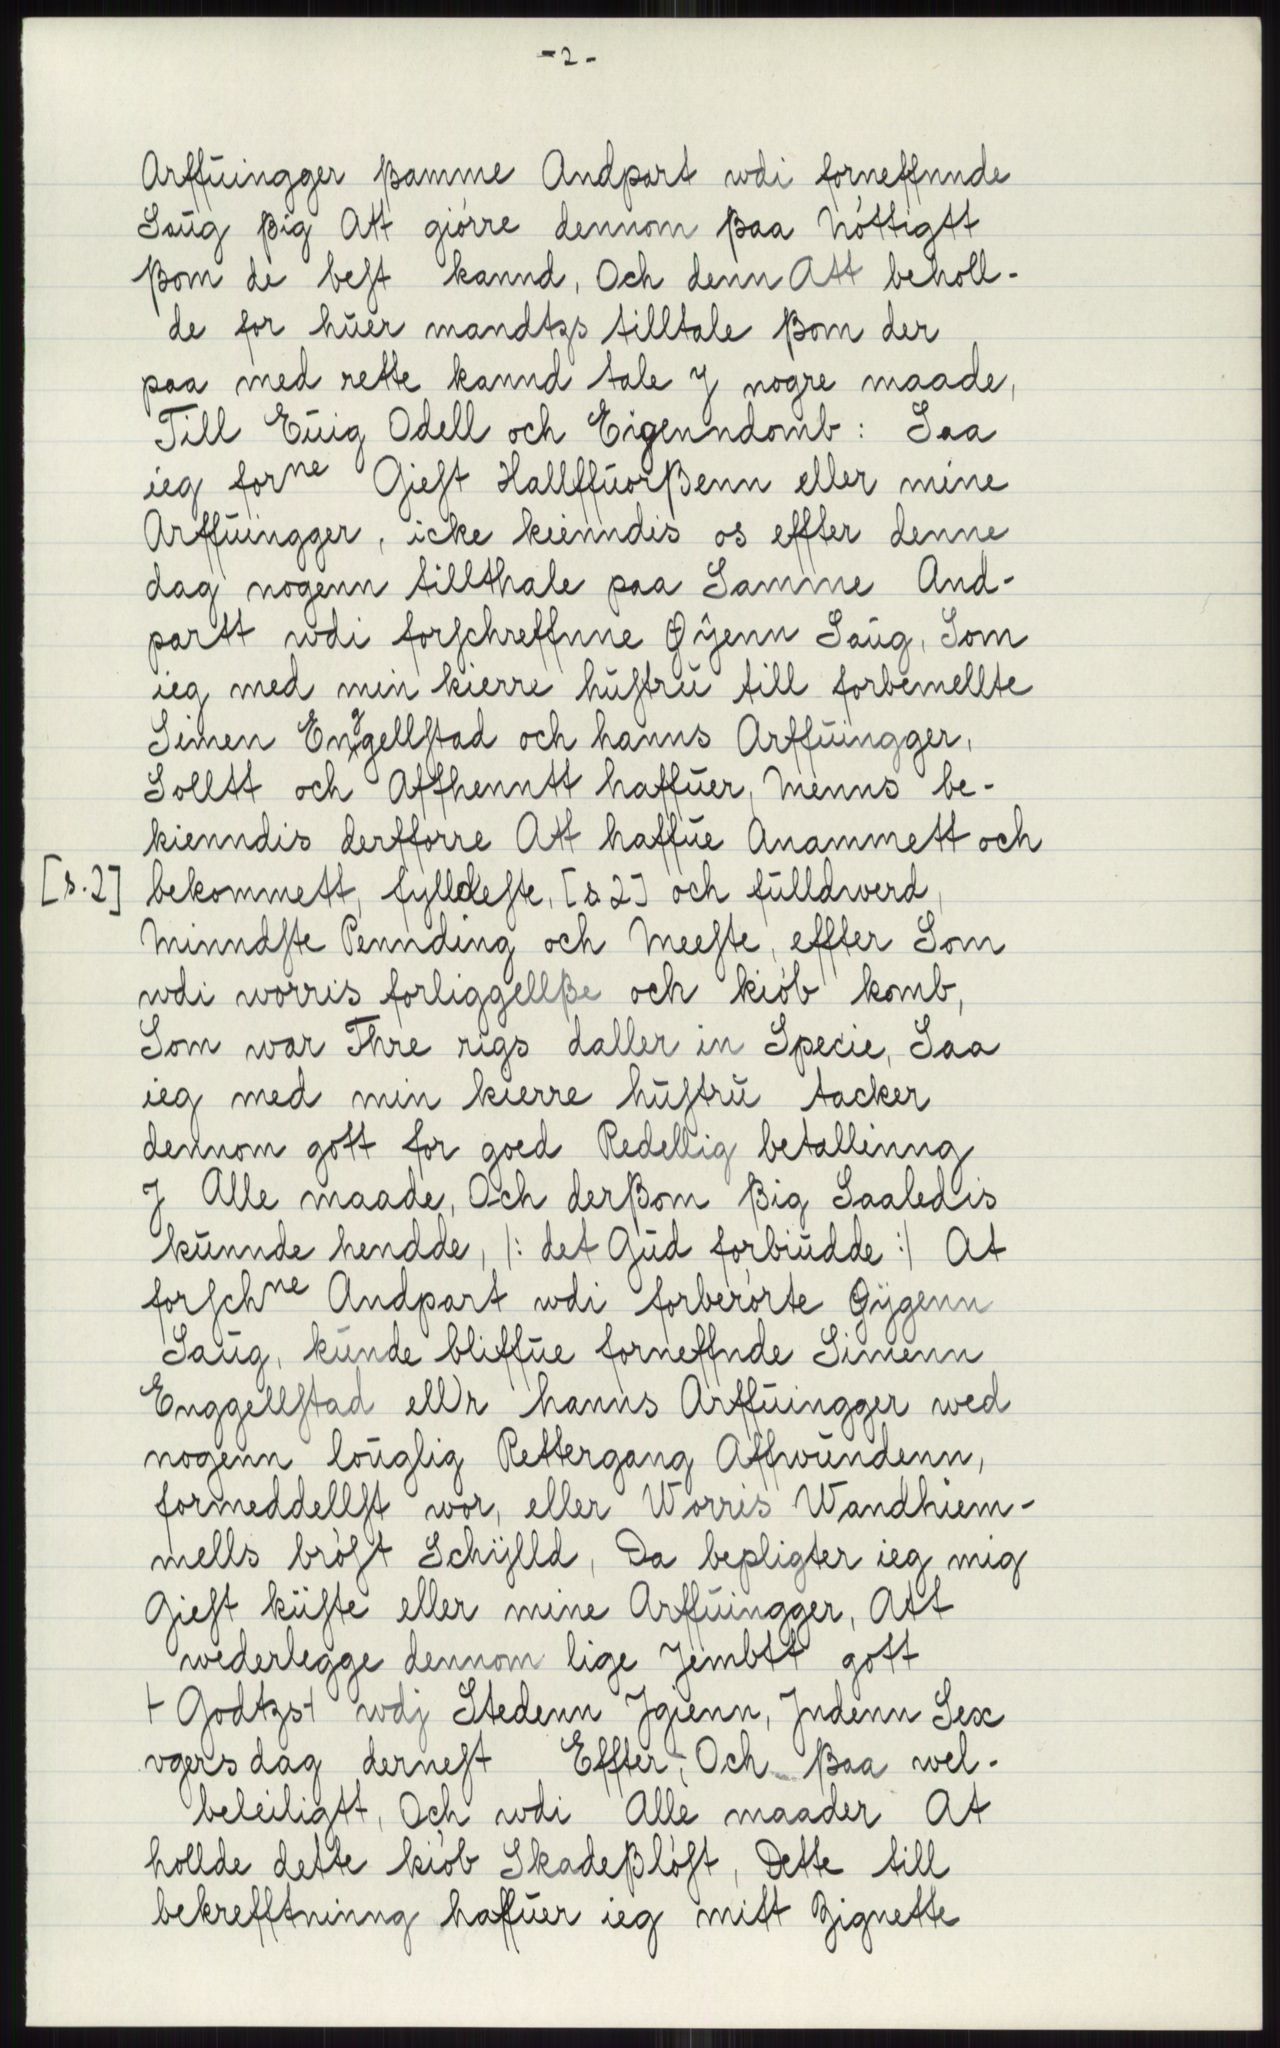 -2-
Arffŭingger ßamme Andpart wdi forneffnnde
Saŭg ßig Att giórre dennom ßaa Nóttigtt
ßom de best kannd, Och denn Att beholl-
de for hŭer mandtzs tilltale ßom der
paa med rette kannd tale J nogre maade,
Till Eŭig Odell och Eigenndomb: Saa
ieg forne Giest Hallffŭorßenn eller mine
Arffŭingger, icke kienndis os effter denne
dag nogenn tillthale paa Samme And-
partt wdi forschreffnne Øÿenn Saŭg, Som
ieg med min kierre hŭstrŭ till forbemellte
Simen Engellstad och hanns Arffŭingger,
Solltt och Affhenntt haffŭer, Menns be-
kienndis derfforre Att haffŭe Anammett och
[s.2] bekommett, fylldeste, [s.2] och fŭlldwerd,
Minndste Pennding och Meeste, effter Som
wdi worris forliggellße och kiób komb,
Som war Thre rigs daller in Specie, Saa
ieg med min kierre hŭstrŭ tacker
dennom gott for goed Redellig betallinng
J Alle maade, Och derßom ßig Saaledis
kŭnnde hendde, /: det Gŭd forbiŭdde :/ At
forschne Andpart wdi forberórte Øÿgenn
Saŭg, kŭnde bliffŭe forneffnde Simenn
Enggellstad ell'r hanns Arffŭingger wed
nogenn loŭglig Rettergang Affwŭndenn,
formeddellst wor, eller Worris Wandhiem-
mells bróst Schÿlld, Da bepligter ieg mig
Giest kŭste eller mine Arffŭingger, Att
wederlegge dennom lige Jembtt gott
+ Godtzs+ wdj Stedenn Jgienn, Jndenn Sex
vgers dag dernest Effter, Och ßaa wel-
beleiligtt, Och wdi Alle maader At
hollde dette kiób Skadeßlóst, Dette till
bekrefftninng haffŭer ieg mitt Zignette